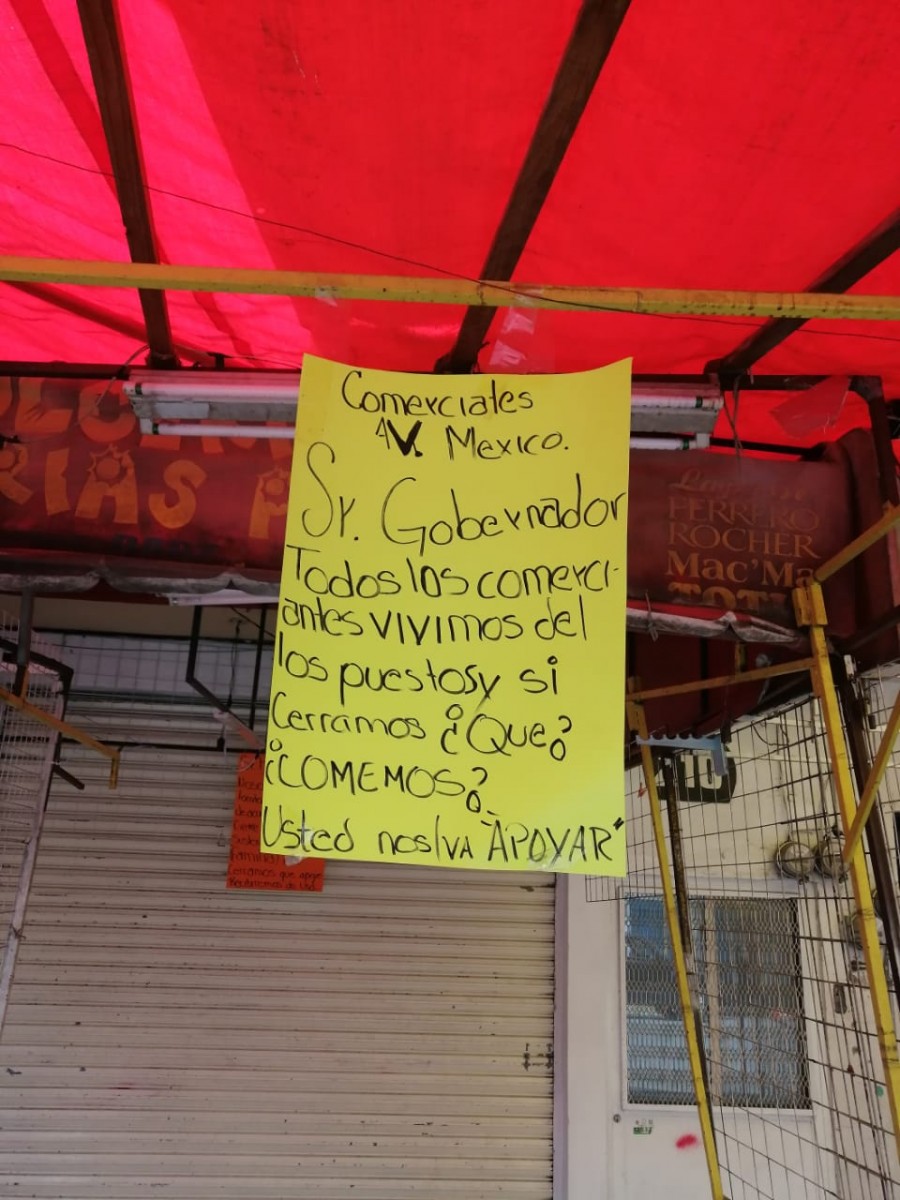 Comerciales
AV. Mexico.
Sr. Gobernador
Todos los comerci-
antes vivimos del
los puestos y si
Cerramos ¿Que?
¿COMEMOS?
Usted nos va "APOYAR"
RIAS
FERRERO
ROCHER
Mac'Ma
110
Cerramos que apoyo